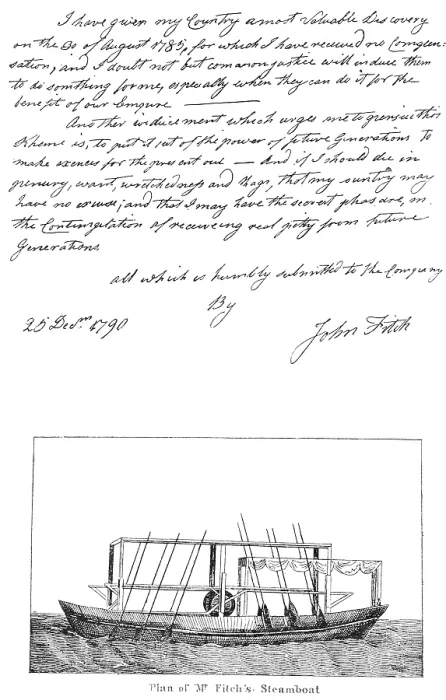 I have given my Country a most Valuable Descovery
on the 30 of August 1785, for which I have received no Compen-
sation; and I doubt not but common justice will induce them
to do somthing for me, especially when they can do it for the
benefit of our Empure
Another inducement which urges me to persue this
Skeme is, to put it out of the power of future Generations to
make excuses for the present one — And if I should die in
penury, want, wretchedness and Rags, that my cuntry may
have no excuse; and that I may have the secret pleasure, in
the Contimplation of receiveing real pitty from future
Generations
all which is humbly submitted to the Company
By
25 Decm 1790
John Fitch
Plan of Mr Fitch's Steamboat